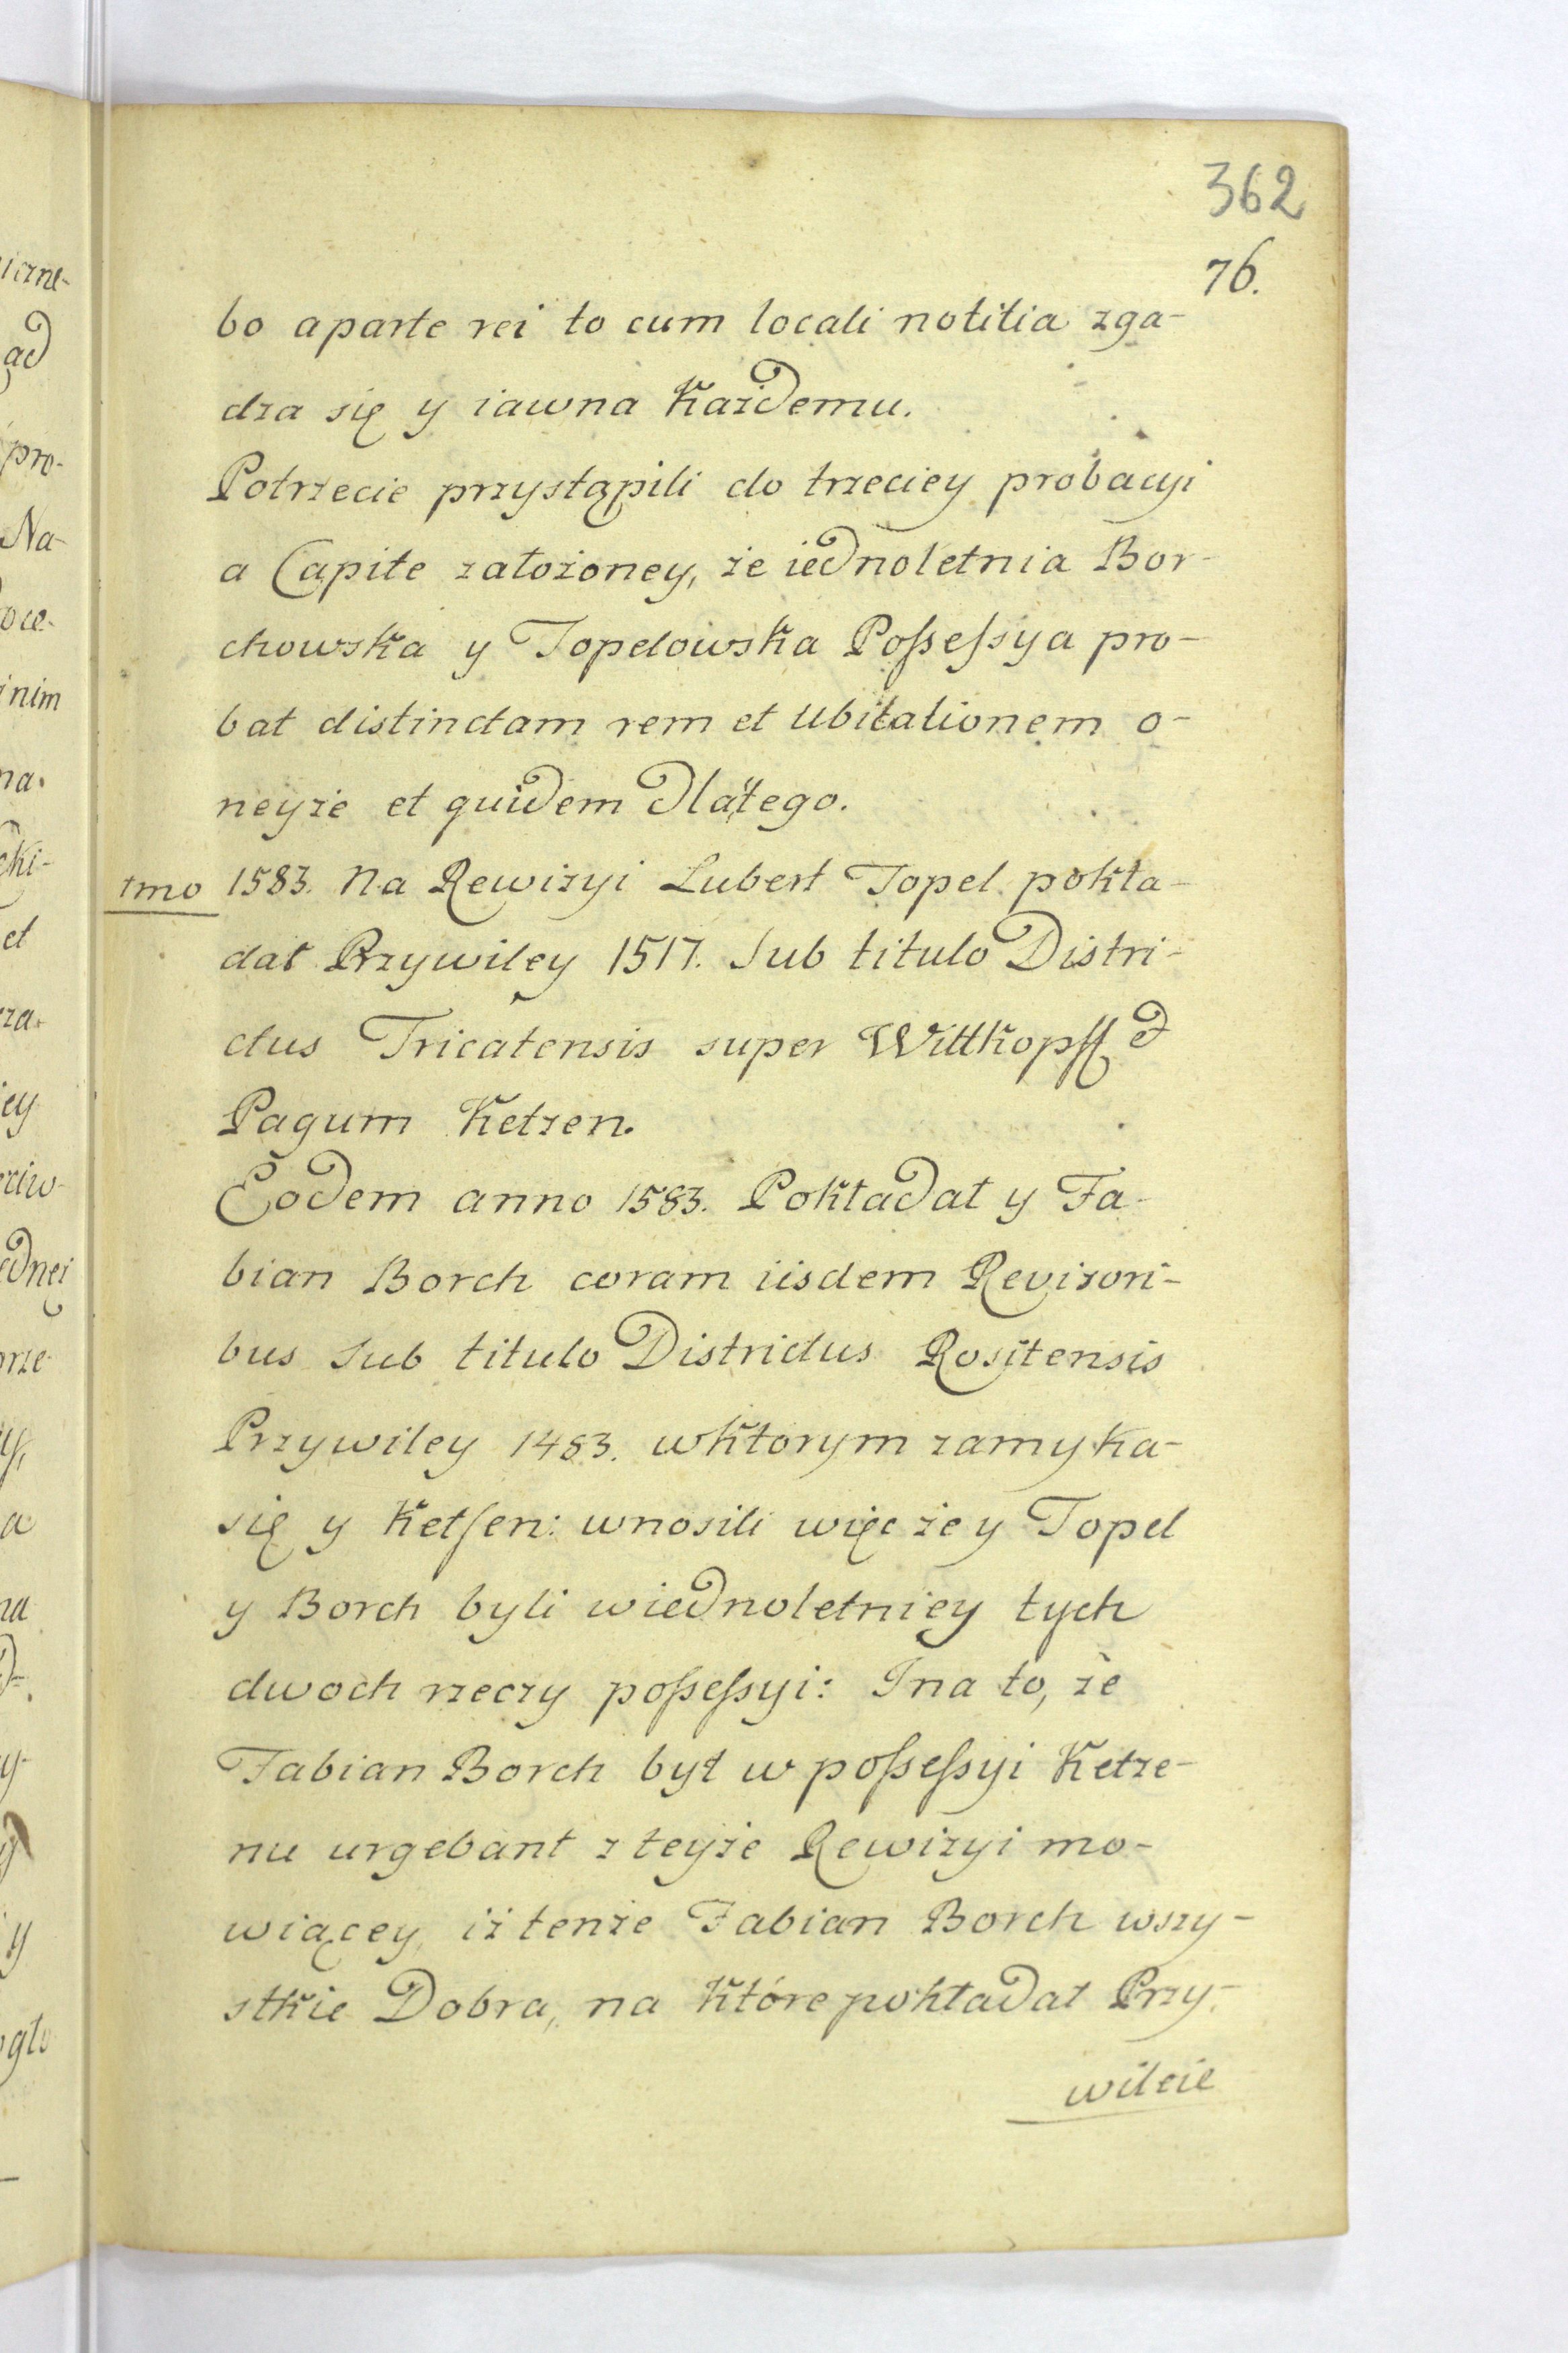 362
76.
bo aparte rei to cum locali notitia zga-
dza się y iawna Każdemu.
Potrzecie przystąpili do trzeciey probacyi
a Capite założoney, że iednoletnia Bor-
chowska y Topelowska Possessya pro-
bat distinctam rem et Ubitationem o-
neyże et quidem dlatego.
1mo 1583. Na Rewizyi Lubert Topel pokła-
dał Przywiley 1517. Sub titulo Distri-
ctus Tricatensis super Wittkopff et
Pagum Ketzen.
Eodem anno 1583. Pokładał y Fa-
bian Borch coram iisdem Revizori-
bus Sub titulo Districtus Rositensis
Przywiley 1483. wktorym zamyka-
się y Ketsen: wnosili więc że y Topel
y Borch byli wiednoletniey tych
dwoch rzeczy possessyi: Ina to, że
Fabian Borch był w possessyi Ketze-
nu urgebant z teyże Rewizyi mo-
wiącey, iż tenże Fabian Borch wszy-
stkie Dobra, na które pokładał Przy-
wileie